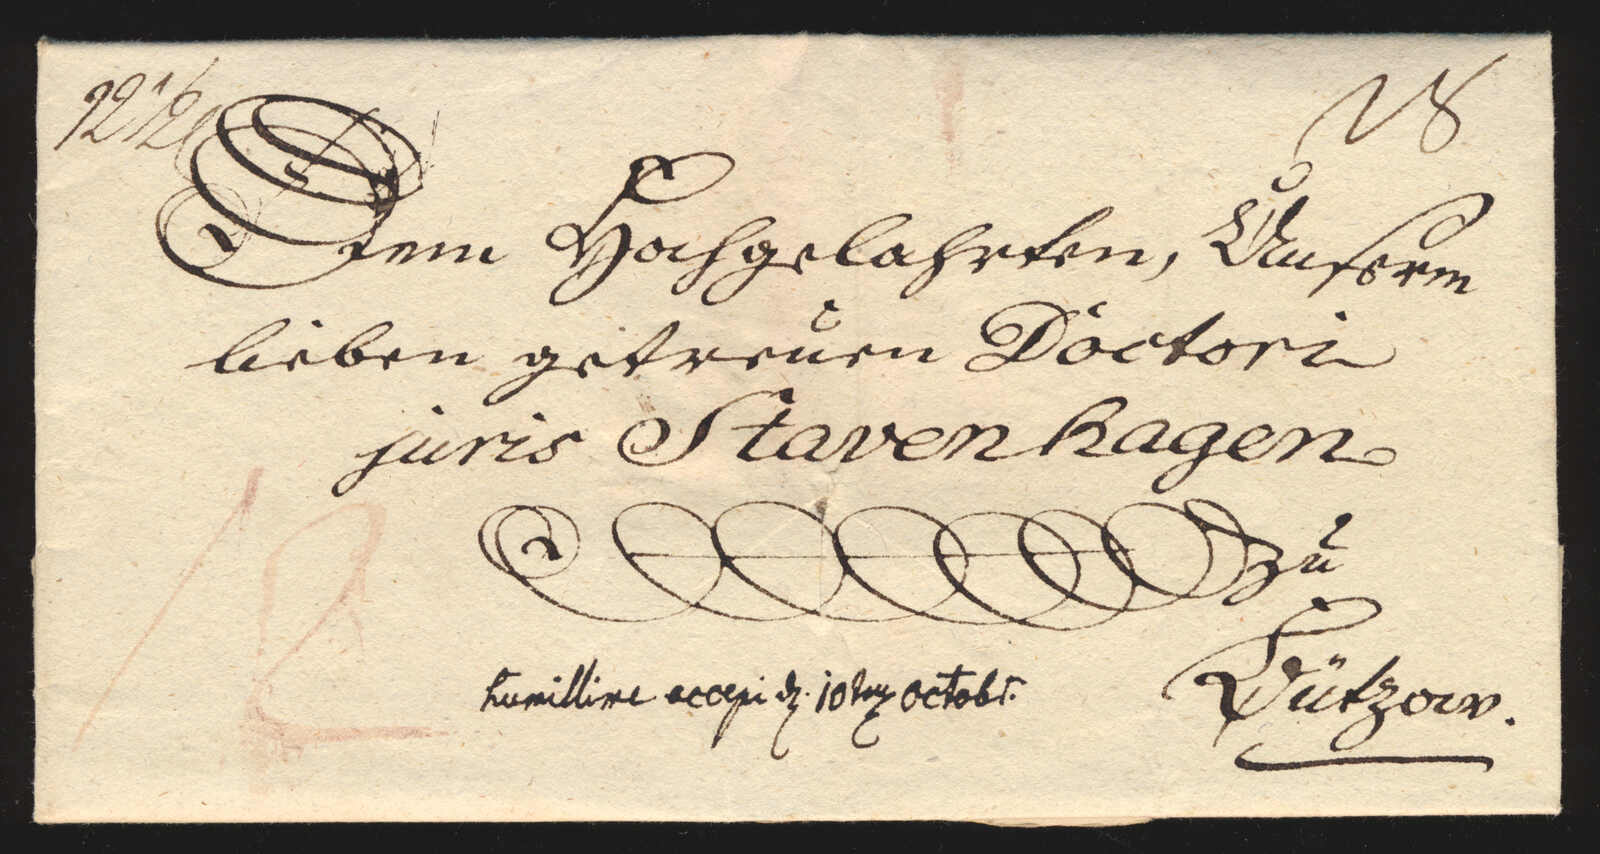 Dem Hochgelahrten, Unserm
lieben getreuen Doctori
juris Stavenhagen
zu
Bützow.
humillime accepi d. 10ten Octobr.